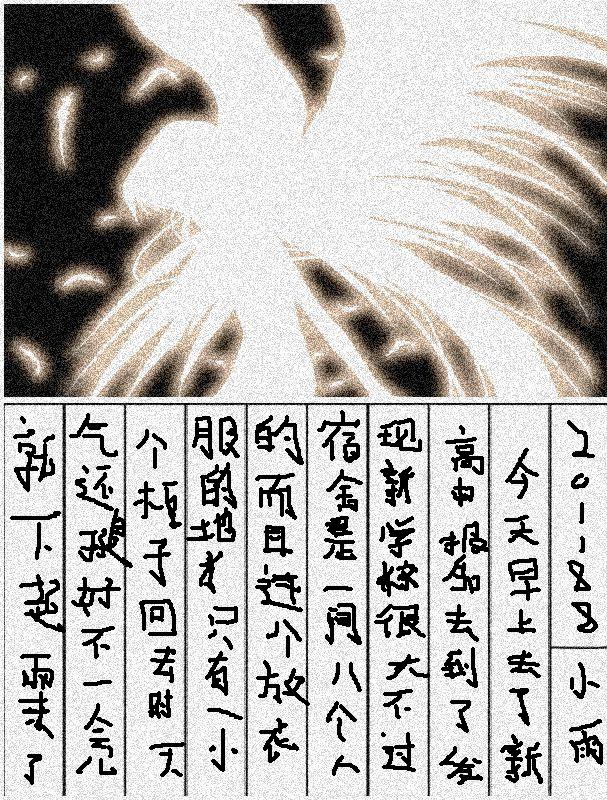 201188 小雨
今天早上去了新
高中报名去到了发
现新学校很大不过
宿舍是一间八个人
的而且连个放衣
服的地方只有一小
个柜子回去时天
气还挺好不一会儿
就下起雨来了